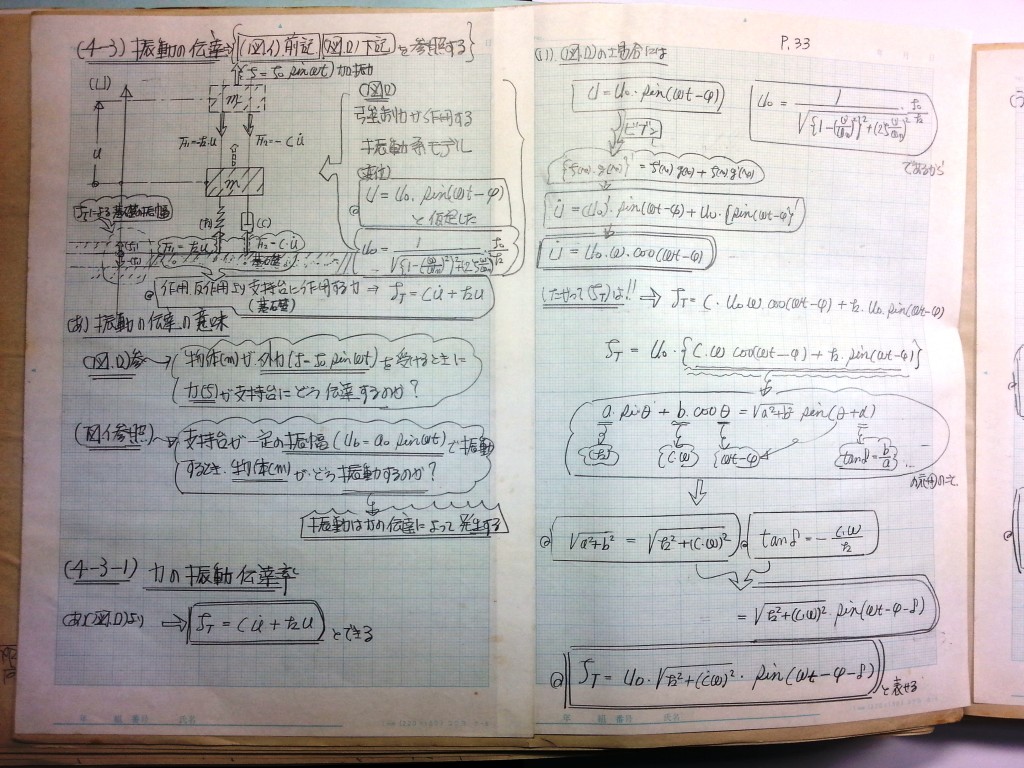 (4-3) 振動の伝達→{(図イ)前記 (図ロ)下記 を参照する}
(U)
f = f₀ sin(ωt) 加振力
m
Fk=-ku
Fc=-Cu̇
u
m
(k)
(C)
Fk=-ku
Fc=-Cu̇
基礎
(図ロ)
強制力が作用する
振動系モデル
変位
U = U₀・sin(ωt-φ)
と仮定した
U₀ = 1/√{1-(ω/ωn)²}²+(2ζω/ωn)²・f₀/k
作用反作用より支持台に作用する力 → f_T = Cu̇ + ku
(基礎)
(あ) 振動の伝達の意味
(図ロ)参 → 物体(m)が外力(f=f₀ sin ωt)を受けるときに
力(f)が支持台にどう伝達するのか?
(図イ参照) → 支持台が一定の振幅(U_b = a₀ sin ωt)で振動
するとき、物体(m)がどう振動するのか?
振動は力の伝達によって発生する
(4-3-1) 力の振動伝達率
(あ)(図ロ)より ⇒ f_T = Cu̇ + ku とできる
年 組 番号 氏名
P.33
(i)) (図ロ)の場合には
U = U₀・sin(ωt-φ)
U₀ = 1/√{1-(ω/ωn)²}²+(2ζω/ωn)²・f₀/k
であるから
ビブン
{f(x)・g(x)}' = f'(x)・g(x) + f(x)・g'(x)
U̇ = (U₀)'・sin(ωt-φ) + U₀・{sin(ωt-φ)}'
U̇ = U₀・ω・cos(ωt-φ)
したがって(f_T)は!! ⇒ f_T = C・U₀ω・cos(ωt-φ) + k・U₀・sin(ωt-φ)
f_T = U₀・{C・ω cos(ωt-φ) + k・sin(ωt-φ)}
a・sinθ + b・cosθ = √a²+b² sin(θ+α)
(k) (C・ω) (ωt-φ) tanδ = b/a
√a²+b² = √k²+(C・ω)²
tanδ = -C・ω/k
= √k²+(C・ω)²・sin(ωt-φ-δ)
f_T = U₀・√k²+(Cω)²・sin(ωt-φ-δ) と表せる
年 組 番号 氏名